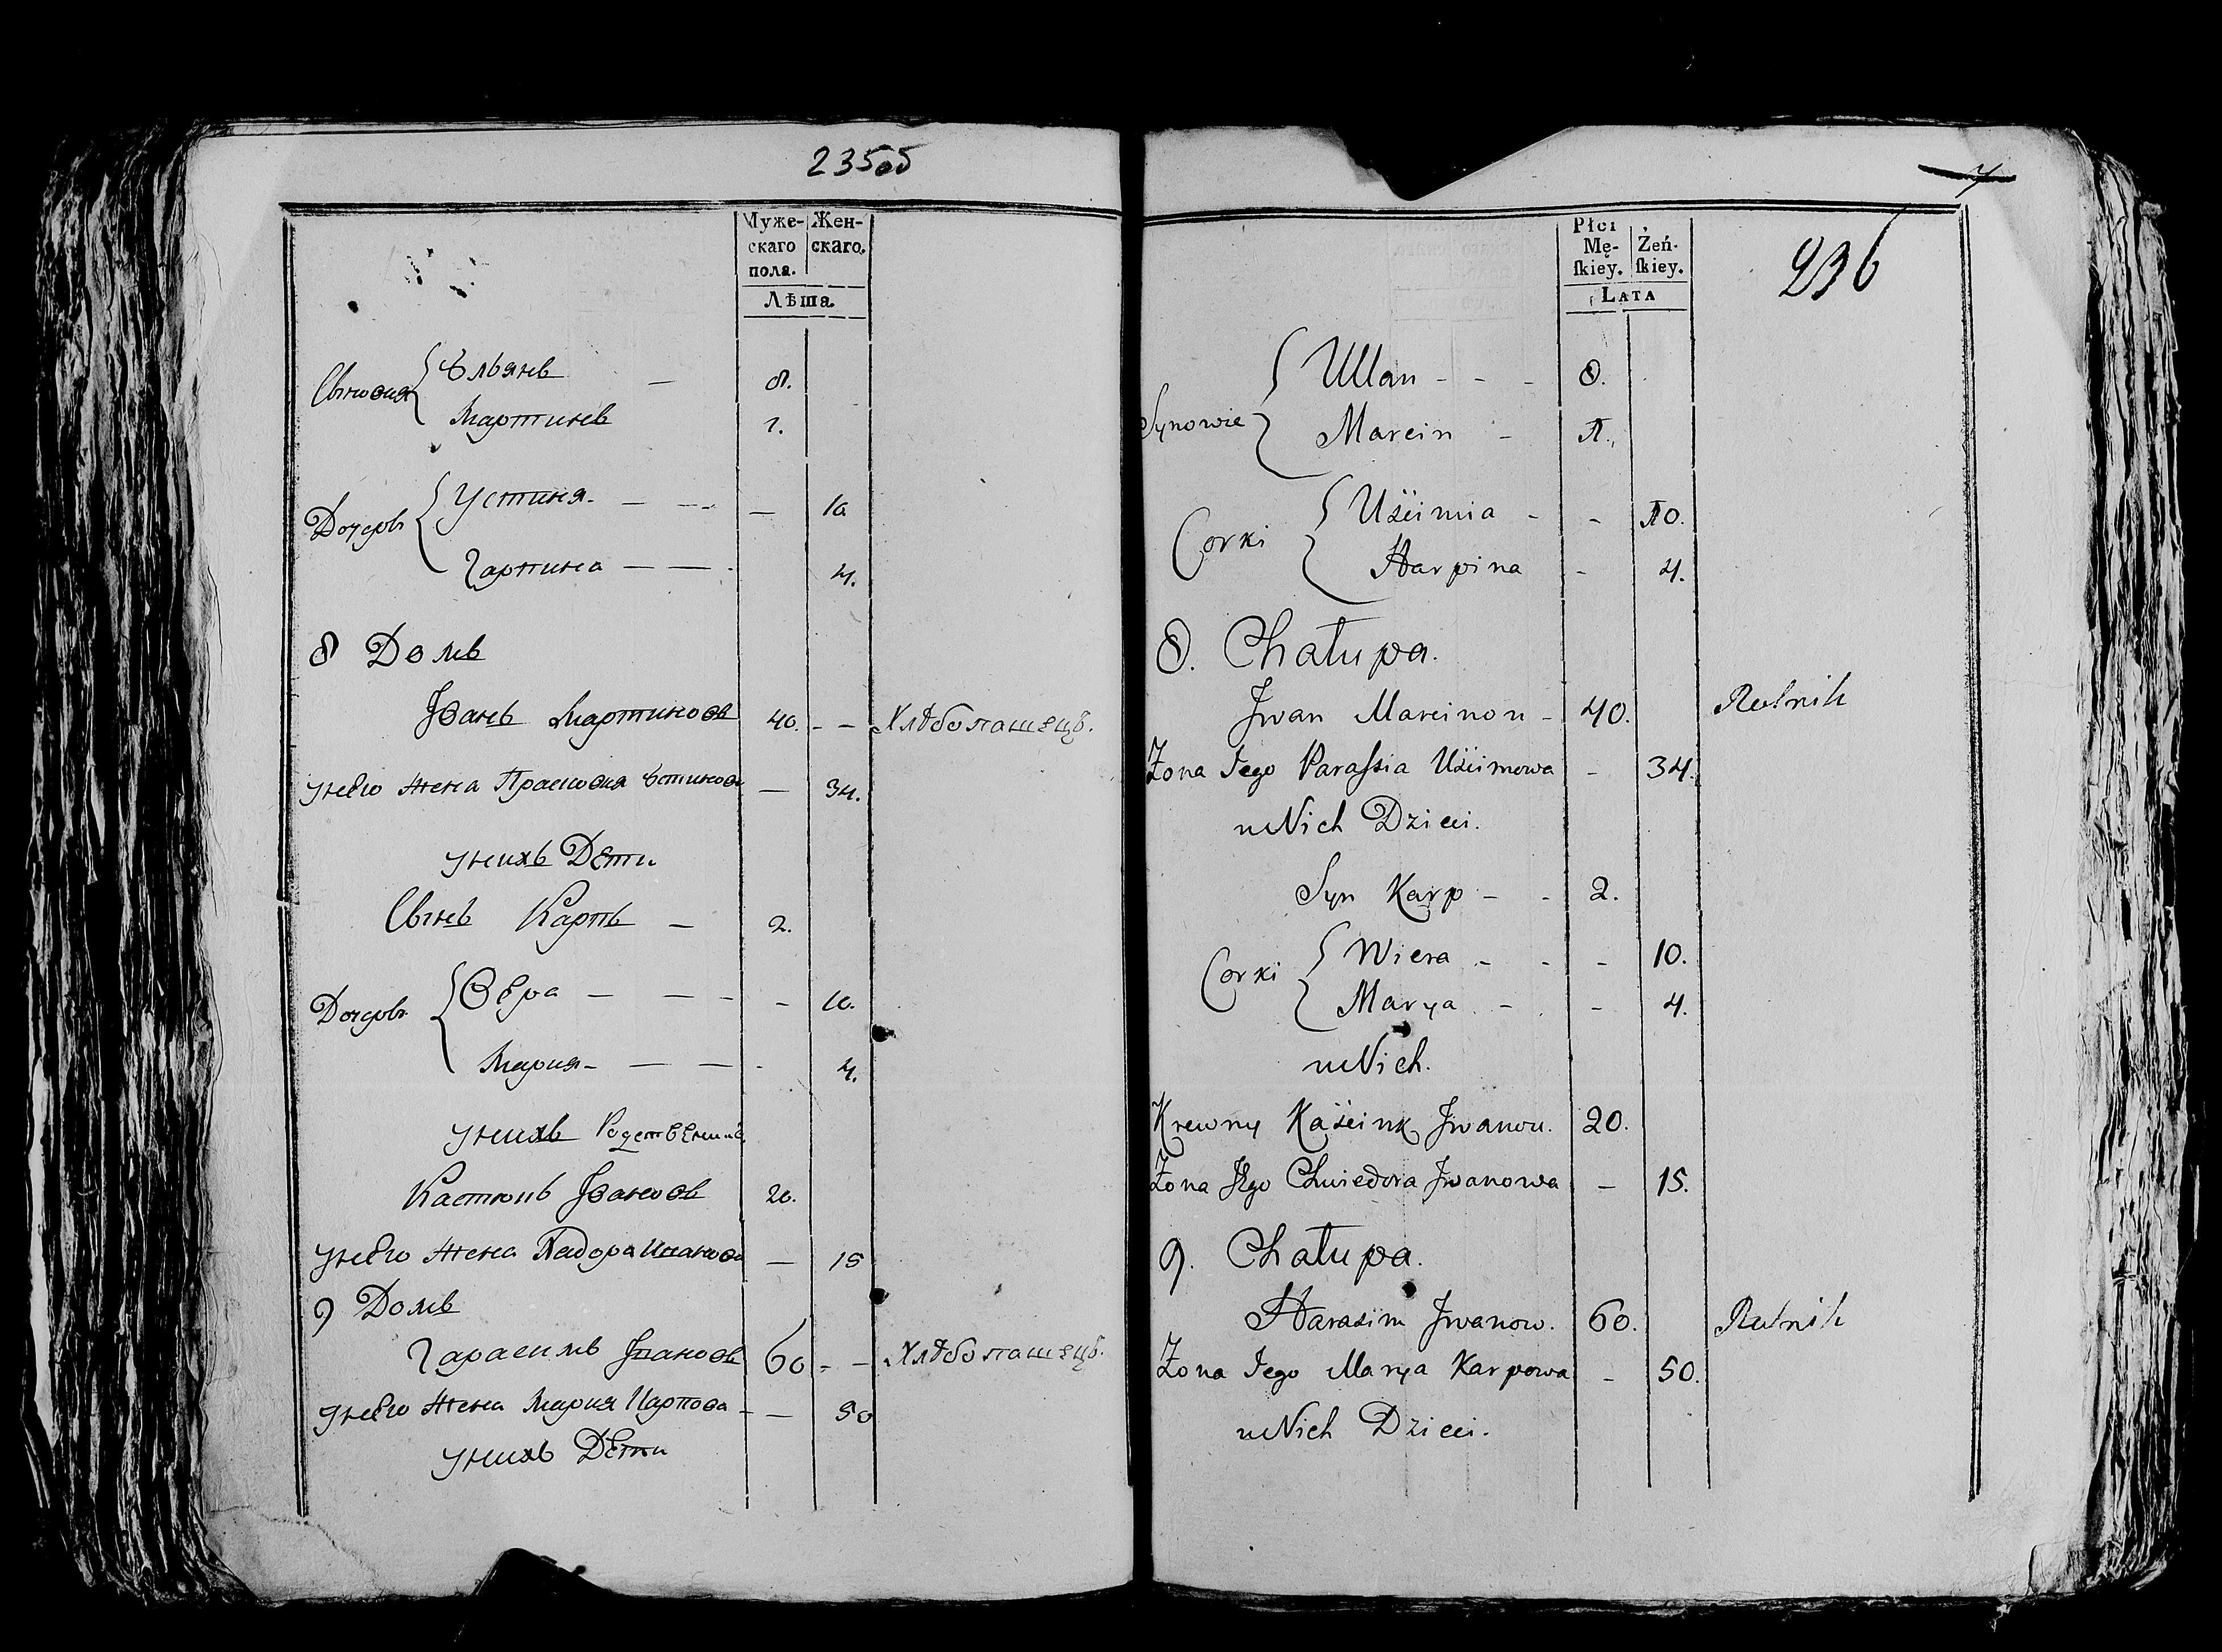 235об
Муже-
скаго
пола.
Жен-
скаго.
Лѣта.
Сыновия
Ѣльянъ — 8.
Мартинъ 1.
Дочеръ
Устиня — — — 10
Гарпина — — 4.
8 Домъ
Іванъ Мартиновъ 40. — — Хлѣбопашецъ.
унего Жена Прасковия — 34.
унихъ Дети
Сынъ Карпъ — 2.
Дочеръ
Вера — — — — 10.
Мария — — — 4.
унихъ
Кастюкъ Івановъ 20.
унего Жена — 15
9 Домъ
Гарасимъ Івановъ 60 — — Хлѣбопашецъ.
унего Жена Мария Карпова — — 50
унихъ Дети
7
236
Płci
Mę-
ſkiey.
Żeń-
ſkiey.
LATA
Synowie
Ullan - - - 8.
Marcin - 1.
Corki
- - 10.
Harpina - 4.
8. Chałupa.
Jwan Marcinow - 40. Rolnik
Żona Jego Paraſsia - 34.
u Nich Dzieci.
Syn Karp - - 2.
Corki
Wiera - - - 10.
Marya - - 4.
u Nich.
Krewny Jwanow. 20.
Żona Jego Chwiedora Jwanowa - 15.
9. Chałupa.
Harasim Jwanow. 60. Rolnik
Żona Jego Marya Karpowa - 50.
u Nich Dzieci.